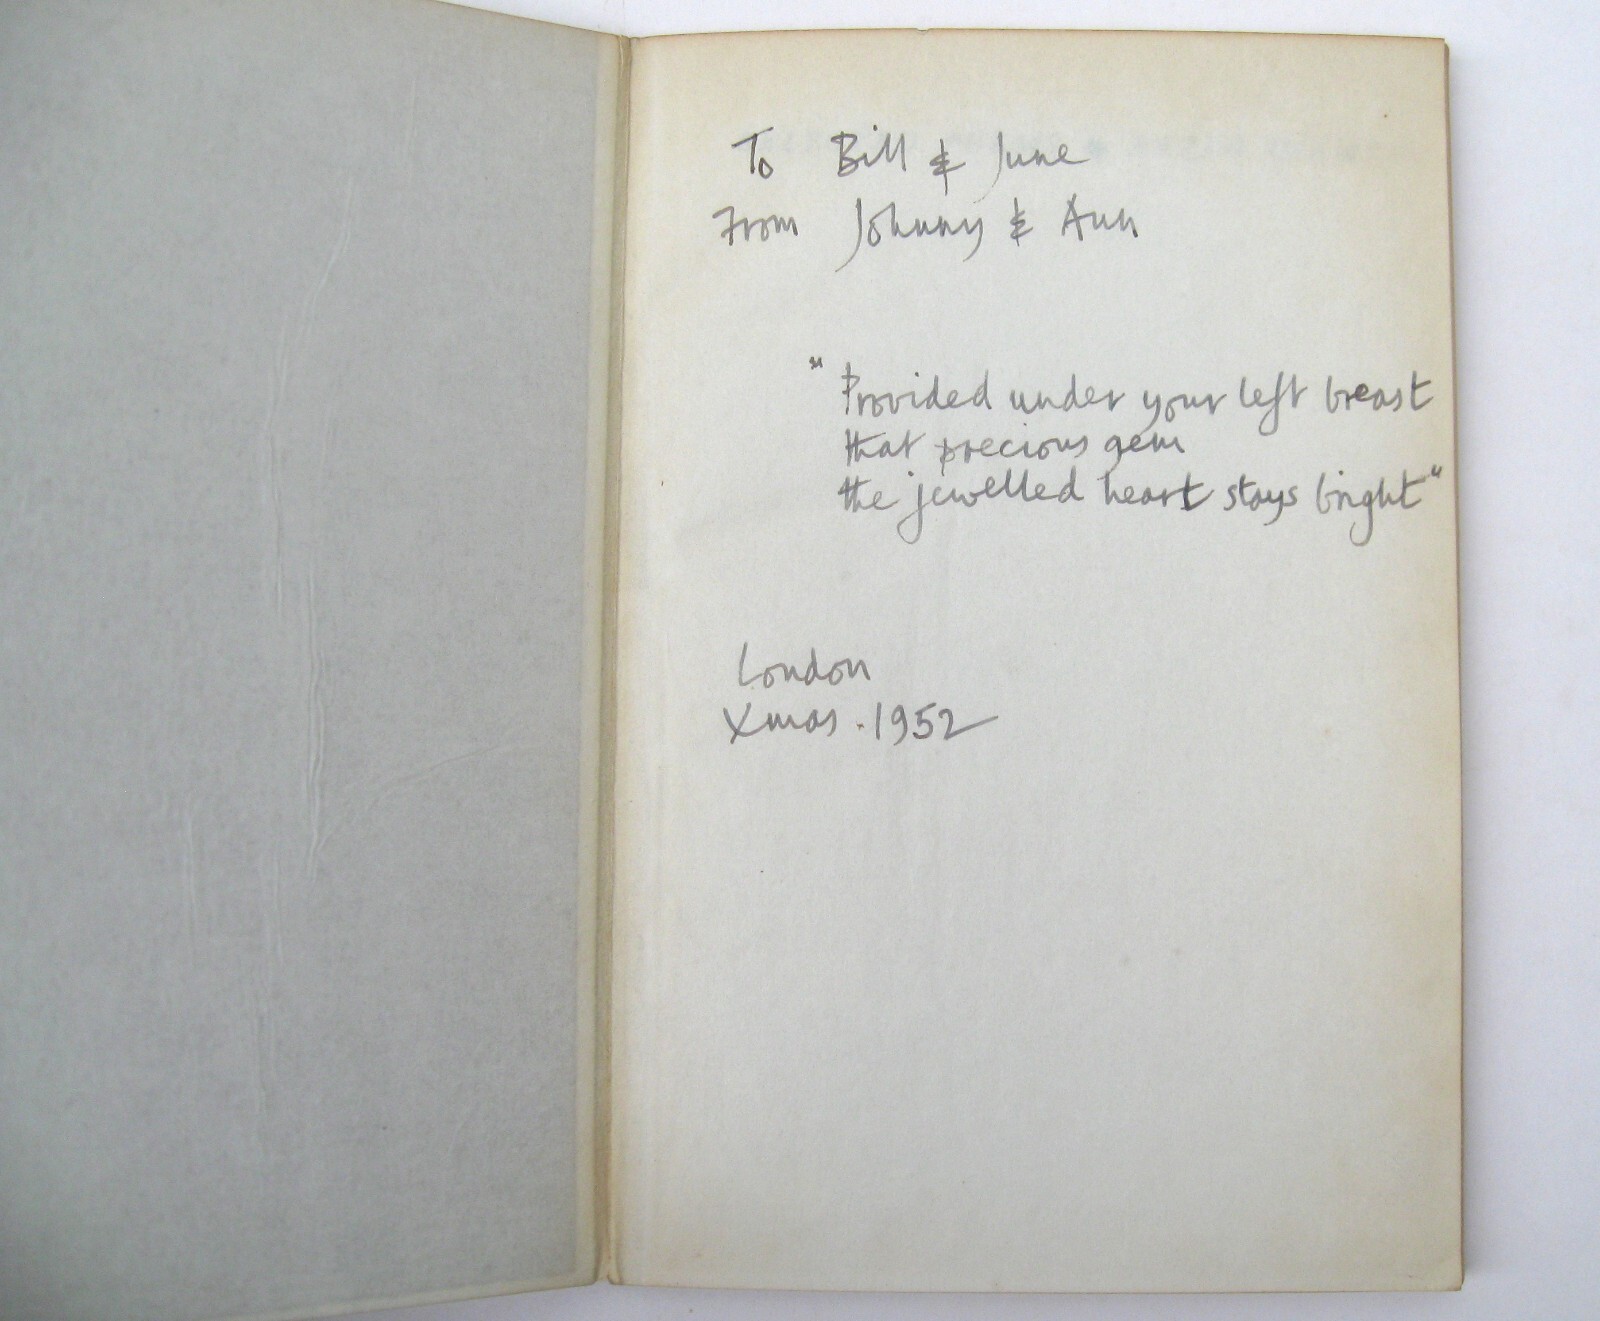 To Bill & June
From Johnny & Ann
"Provided under your left breast
that precious gem
the jewelled heart stays bright"
London
Xmas. 1952